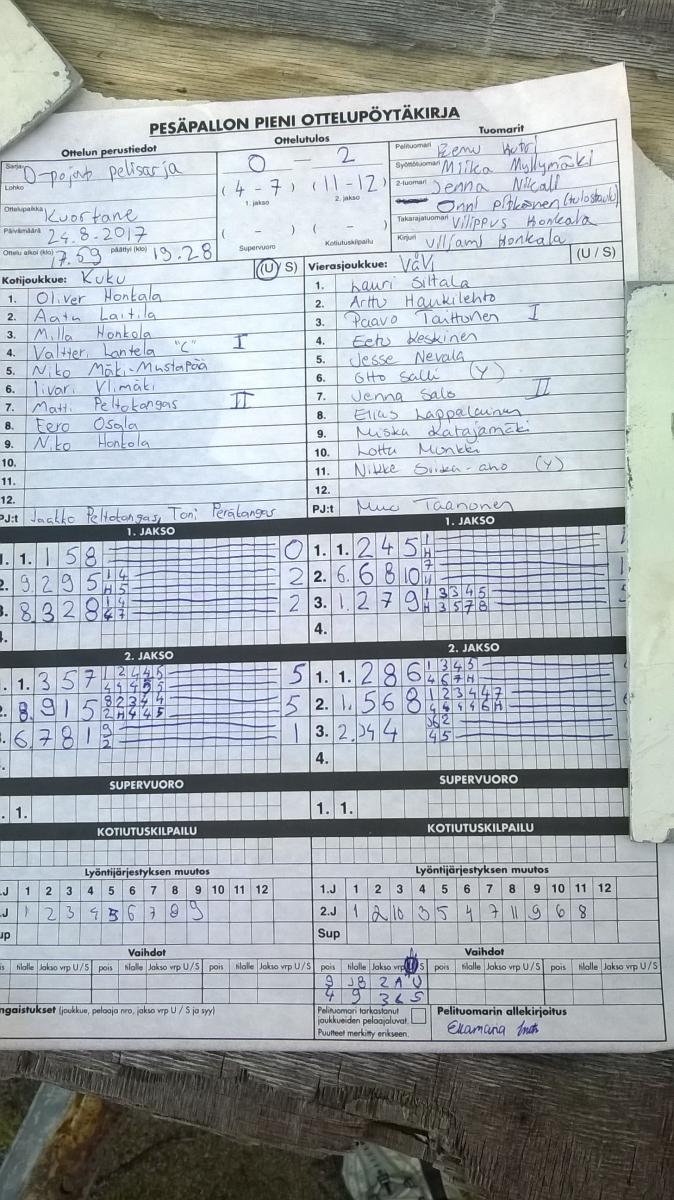 PESÄPALLON PIENI OTTELUPÖYTÄKIRJA
Ottelun perustiedot
Sarja D-pojat pelisarja
Lohko
Ottelupaikka Kuortane
Päivämäärä 24.8.2017
Ottelu alkoi (klo) 7.59 päättyi (klo) 19.28
Ottelutulos
0 - 2
(4-7) (11-12)
1. jakso 2. jakso
( - ) ( - )
Supervuoro Kotiutuskilpailu
Tuomarit
Pelituomari
Syöttötuomari Miika Myllymäki
2-tuomari Jenna
Onni Pitkänen (tulostaulu)
Takarajatuomari Vilippus Honkala
Kirjuri Viljami Honkala
Kotijoukkue: Kuku (U/S)
1. Oliver Honkala
2. Aatu Laitila
3. Milla Honkola
4. Valtteri Lantela "C" I
5. Niko Mäki-Mustapää
6. Iivari Ylimäki
7. Matti Peltokangas II
8. Eero Osala
9. Niko Honkola
10.
11.
12.
PJ:t Jaakko Peltokangas, Toni Peräkangas
Vierasjoukkue: VäVi (U/S)
1. Lauri Siltala
2. Arttu Haukilehto
3. Paavo Taittonen I
4. Eetu Keskinen
5. Jesse Nevala
6. Otto Salli (Y)
7. Jenna Salo II
8. Elias Lappalainen
9. Miska Katajamäki
10. Lotta Munkki
11. Nikke Siika-aho (Y)
12.
PJ:t Taanonen
1. JAKSO
1. 1. 1 5 8 0
2. 9 2 9 5 1 4 H 5 2
3. 8 3 2 8 2
1. JAKSO
1. 1. 2 4 5 1 H
2. 6. 6 8 10
3. 1. 2 7 9 1 3 3 4 5 H 3 5 7 8
4.
2. JAKSO
1. 1. 3 5 7 5
8. 9 1 5 5
6. 7 8 1 9 2 1
2. JAKSO
1. 1. 2 8 6 1 3 4 5 4 6 7 H
2. 1. 5 6 8 1 2 3 4 4 7 4 4 4 4 6 H
3. 2. J4 4 J6 2 4 5
4.
SUPERVUORO
1. 1.
SUPERVUORO
1. 1.
KOTIUTUSKILPAILU
KOTIUTUSKILPAILU
Lyöntijärjestyksen muutos
.J 1 2 3 4 5 6 7 8 9 10 11 12
.J 1 2 3 4 5 6 7 8 9
up
Lyöntijärjestyksen muutos
1.J 1 2 3 4 5 6 7 8 9 10 11 12
2.J 1 2 10 3 5 4 7 11 9 6 8
Sup
Vaihdot
is tilalle Jakso vrp U/S pois tilalle Jakso vrp U/S pois tilalle Jakso vrp U/S
Vaihdot
pois tilalle Jakso vrp U S pois tilalle Jakso vrp U/S pois tilalle Jakso vrp U/S
9 J8 2 A U
4 9 3 L S
ngaistukset (joukkue, pelaaja nro, jakso vrp U / S ja syy)
Pelituomari tarkastanut
joukkueiden pelaajaluvat.
Puutteet merkitty erikseen.
Pelituomarin allekirjoitus